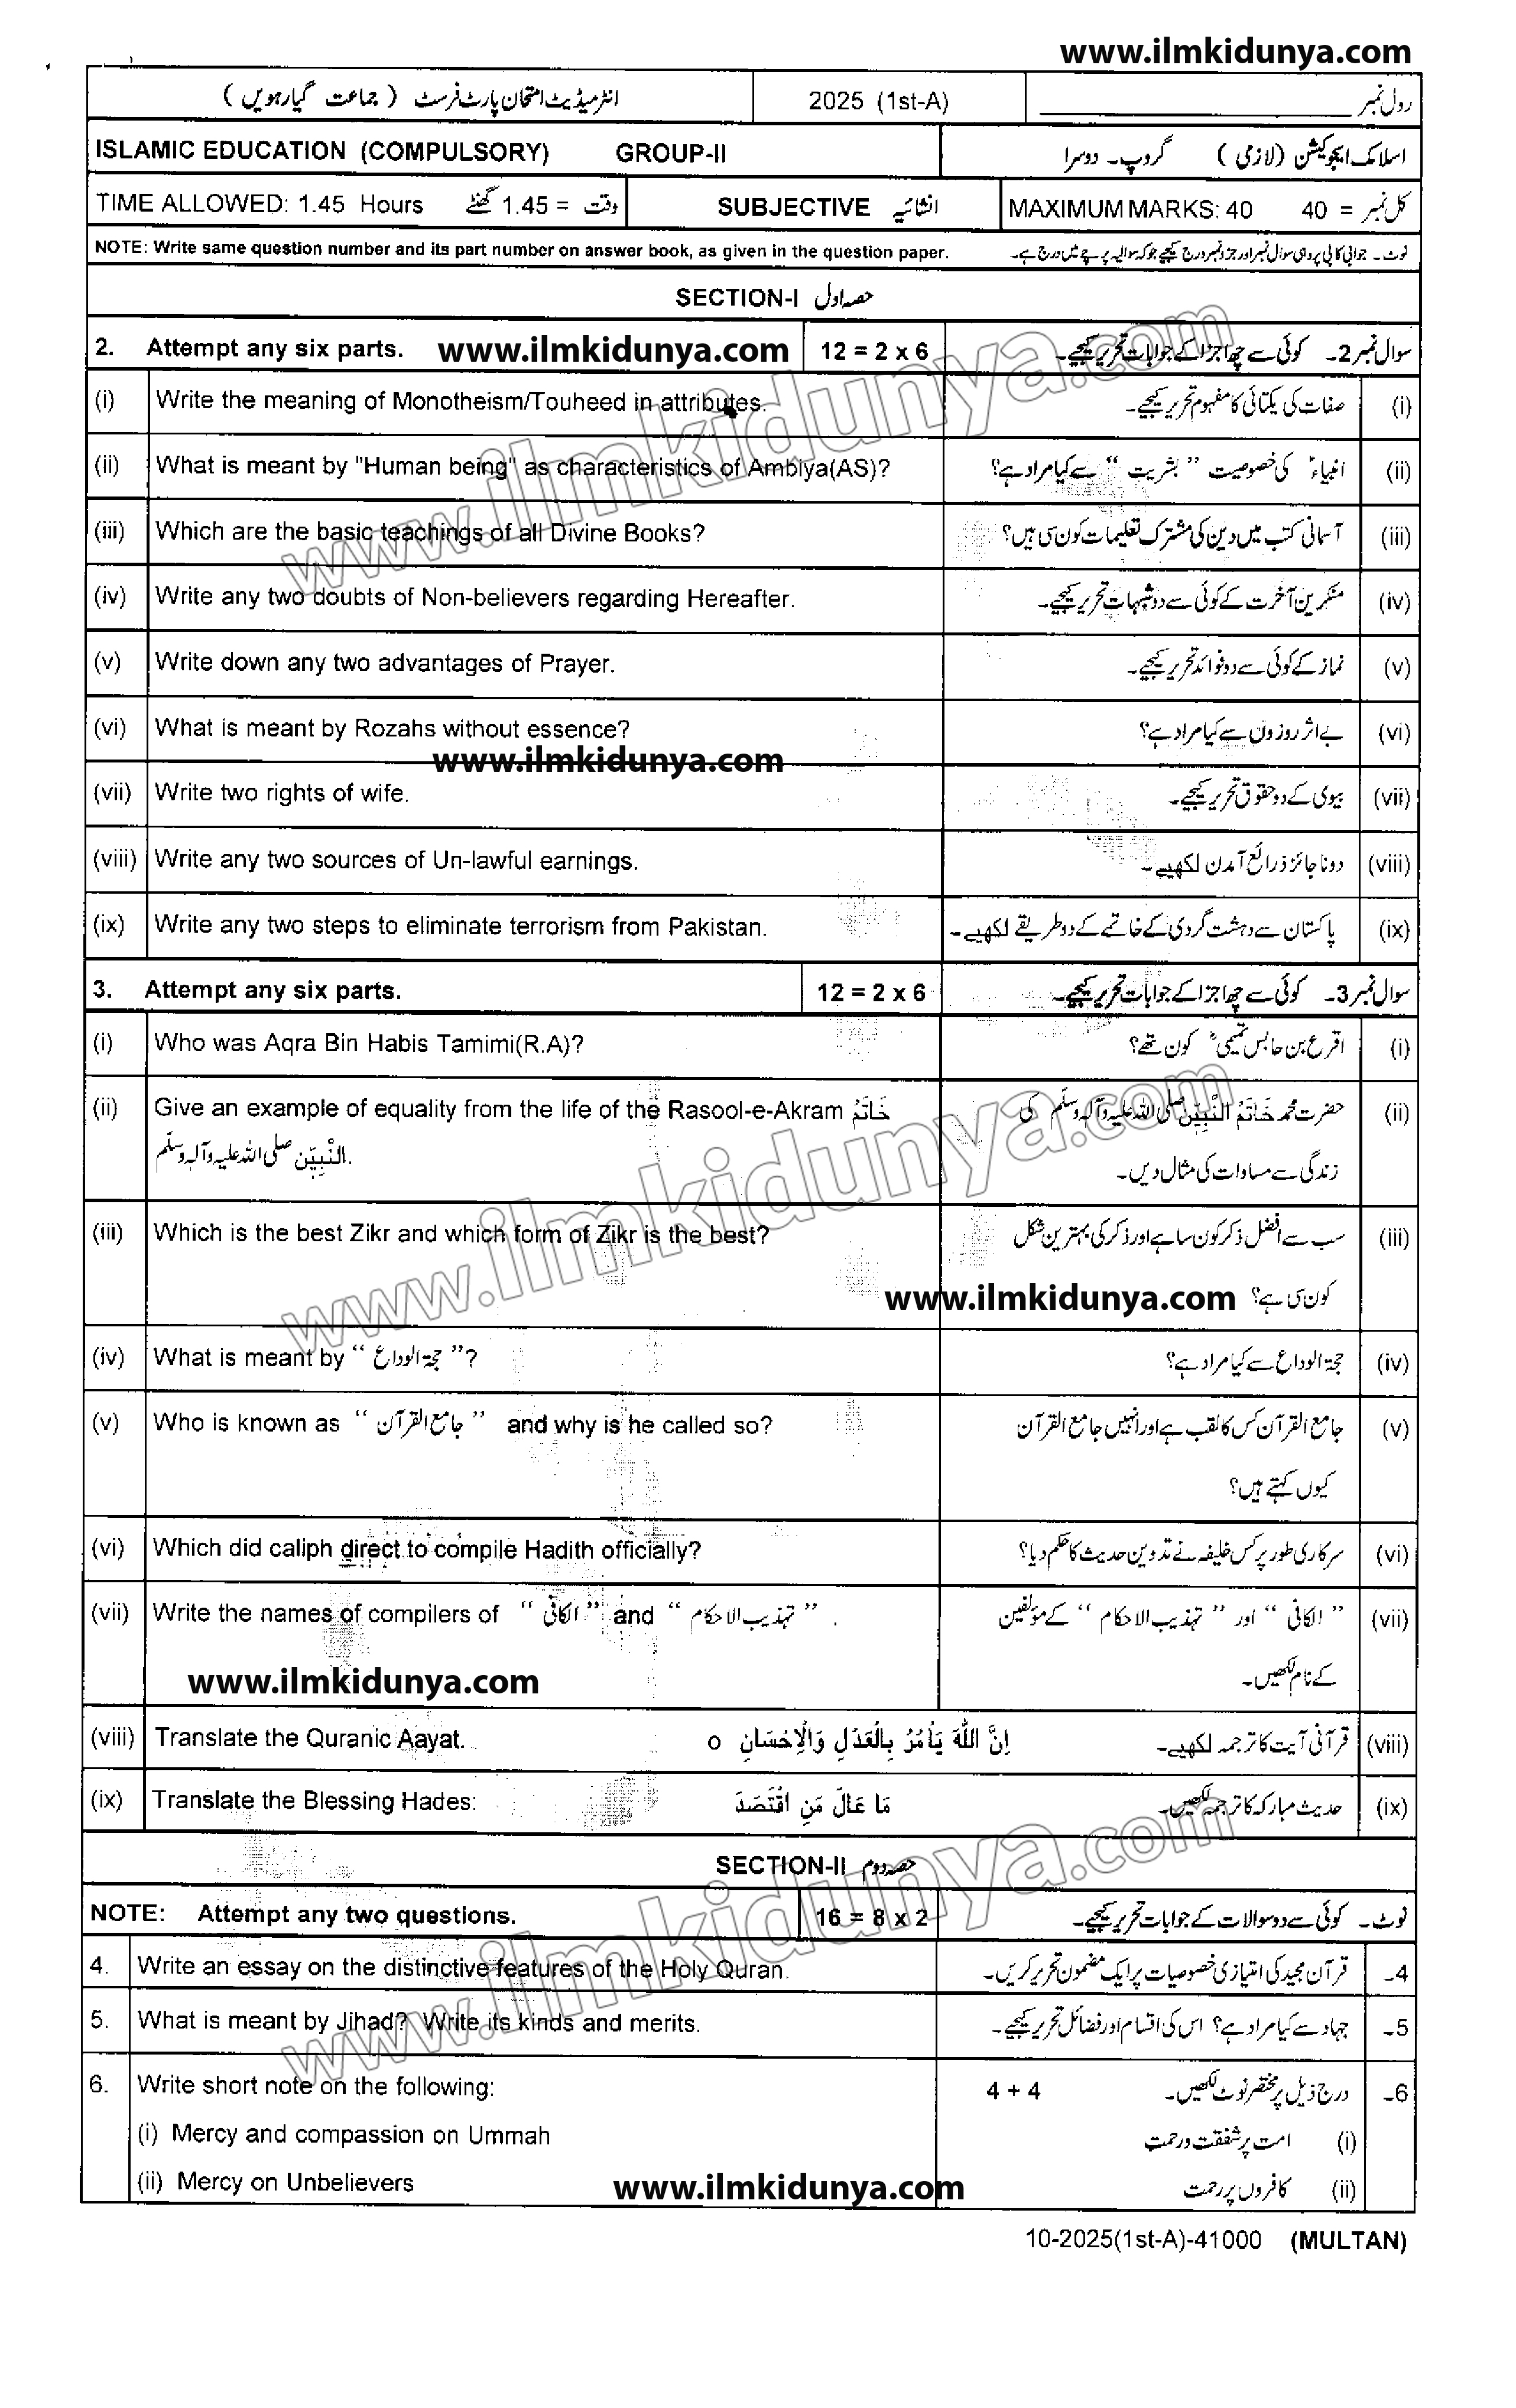 www.ilmkidunya.com
انٹرمیڈیٹ امتحان پارٹ فرسٹ ( جماعت گیارہویں ) 2025 (1st-A) رول نمبر
ISLAMIC EDUCATION (COMPULSORY) GROUP-II اسلامک ایجوکیشن (لازمی ) گروپ۔ دوسرا
TIME ALLOWED: 1.45 Hours وقت = 1.45 گھنٹے SUBJECTIVE انشائیہ MAXIMUM MARKS: 40 کل نمبر = 40
NOTE: Write same question number and its part number on answer book, as given in the question paper. نوٹ۔ جوابی کاپی پر وہی سوال نمبر اور جزو نمبر درج کیجیے جو کہ سوالیہ پرچے میں درج ہے۔
SECTION-I حصہ اول
2. Attempt any six parts. www.ilmkidunya.com 12 = 2 x 6 سوال نمبر 2۔ کوئی سے چھ اجزا کے جوابات تحریر کیجیے۔
(i) Write the meaning of Monotheism/Touheed in attributes. صفات کی یکتائی کا مفہوم تحریر کیجیے۔ (i)
(ii) What is meant by "Human being" as characteristics of Ambiya(AS)? انبیاءؑ کی خصوصیت " بشریت " سے کیا مراد ہے؟ (ii)
(iii) Which are the basic teachings of all Divine Books? آسمانی کتب میں دین کی مشترک تعلیمات کون سی ہیں؟ (iii)
(iv) Write any two doubts of Non-believers regarding Hereafter. منکرین آخرت کے کوئی سے دو شبہات تحریر کیجیے۔ (iv)
(v) Write down any two advantages of Prayer. نماز کے کوئی سے دو فوائد تحریر کیجیے۔ (v)
(vi) What is meant by Rozahs without essence? بے اثر روزوں سے کیا مراد ہے؟ (vi)
www.ilmkidunya.com
(vii) Write two rights of wife. بیوی کے دو حقوق تحریر کیجیے۔ (vii)
(viii) Write any two sources of Un-lawful earnings. دو ناجائز ذرائع آمدن لکھیے۔ (viii)
(ix) Write any two steps to eliminate terrorism from Pakistan. پاکستان سے دہشت گردی کے خاتمے کے دو طریقے لکھیے۔ (ix)
3. Attempt any six parts. 12 = 2 x 6 سوال نمبر 3۔ کوئی سے چھ اجزا کے جوابات تحریر کیجیے۔
(i) Who was Aqra Bin Habis Tamimi(R.A)? اقرع بن حابس تمیمیؓ کون تھے؟ (i)
(ii) Give an example of equality from the life of the Rasool-e-Akram خَاتَمُ حضرت محمد خَاتَمُ النَّبِیّٖن صلی اللہ علیہ وآلہ وسلم کی (ii)
النَّبِیّٖن صلی اللہ علیہ وآلہ وسلم. زندگی سے مساوات کی مثال دیں۔
(iii) Which is the best Zikr and which form of Zikr is the best? سب سے افضل ذکر کون سا ہے اور ذکر کی بہترین شکل (iii)
www.ilmkidunya.com کون سی ہے؟
(iv) What is meant by " حجۃ الوداع "? حجۃ الوداع سے کیا مراد ہے؟ (iv)
(v) Who is known as " جامع القرآن " and why is he called so? جامع القرآن کس کا لقب ہے اور انہیں جامع القرآن (v)
کیوں کہتے ہیں؟
(vi) Which did caliph direct to compile Hadith officially? سرکاری طور پر کس خلیفہ نے تدوین حدیث کا حکم دیا؟ (vi)
(vii) Write the names of compilers of " الکافی " and " تہذیب الاحکام " . " الکافی " اور " تہذیب الاحکام " کے مؤلفین (vii)
www.ilmkidunya.com کے نام لکھیں۔
(viii) Translate the Quranic Aayat. اِنَّ اللّٰہَ یَاْمُرُ بِالْعَدْلِ وَالْاِحْسَانِ o قرآنی آیت کا ترجمہ لکھیے۔ (viii)
(ix) Translate the Blessing Hades: مَا عَالَ مَنِ اقْتَصَدَ حدیث مبارکہ کا ترجمہ لکھیں۔ (ix)
SECTION-II حصہ دوم
NOTE: Attempt any two questions. 16 = 8 x 2 نوٹ۔ کوئی سے دو سوالات کے جوابات تحریر کیجیے۔
4. Write an essay on the distinctive features of the Holy Quran. قرآن مجید کی امتیازی خصوصیات پر ایک مضمون تحریر کریں۔ 4۔
5. What is meant by Jihad? Write its kinds and merits. جہاد سے کیا مراد ہے؟ اس کی اقسام اور فضائل تحریر کیجیے۔ 5۔
6. Write short note on the following: 4 + 4 درج ذیل پر مختصر نوٹ لکھیں۔ 6۔
(i) Mercy and compassion on Ummah امت پر شفقت ورحمت (i)
(ii) Mercy on Unbelievers www.ilmkidunya.com کافروں پر رحمت (ii)
10-2025(1st-A)-41000 (MULTAN)